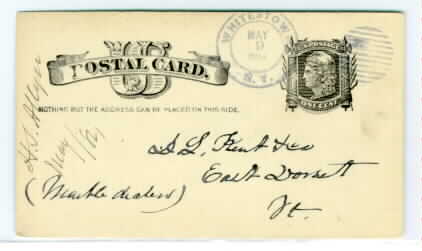 POSTAL CARD.
US
NOTHING BUT THE ADDRESS CAN BE PLACED ON THIS SIDE.
WHITESTOW
MAY
9
N.Y.
U.S. POSTAGE
ONE CENT
May
D L Kent & Co
East Dorset
Vt.
(Marble dealers)